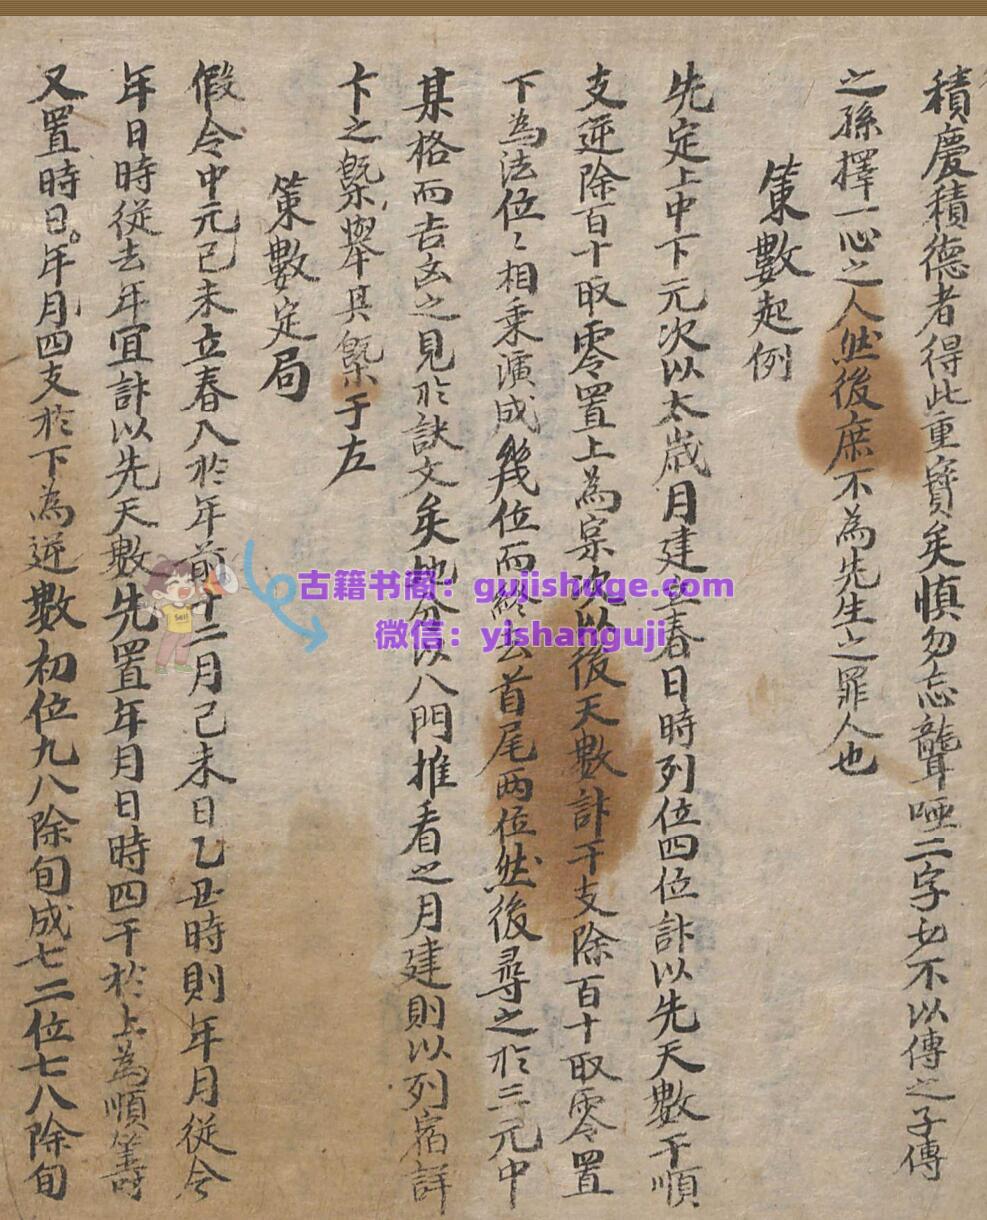 積慶積德者得此重寶矣慎勿忘聾啞二字也不以傳之子傳
之孫擇一心之人然後庶不為先生之罪人也
策數起例
先定上中下元次以太歲月建立春日時列位四位計以先天數干順
支逆除百十取零置上為次以後天數計干支除百十取零置
下為法位〻相乗演成幾位而終去首尾两位然後尋之於三元中
某格而吉凶之見於訣文矣地分以八門推看之月建則以列宿詳
之槩擧其槩于左
策數定局
假令中元己未立春入於年前十二月己未日乙丑時則年月從今
年日時從去年冝計以先天數先置年月日時四干於上為順籌
又置時日年月四支於下為逆數初位九八除旬成七二位七八除旬
古籍书阁：gujishuge.com
微信：yishanguji